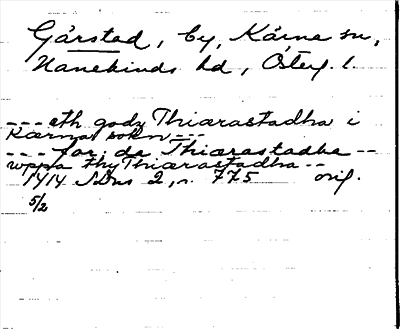 Gårstad, by, Kärna sn,
Hanekinds hd, Österg. l.
--- eth godz Thiærastadha i
Kærna sokn ---
--- for:de Thiærastadhe --
wppa thy Thiærastadha --
1414 SDns 2, n. 775 orig.
5/2